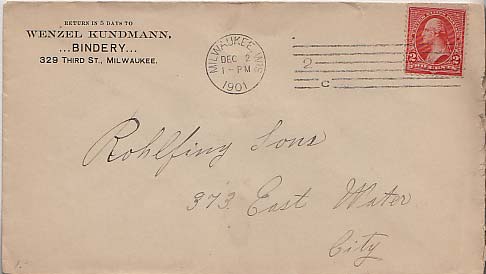 RETURN IN 5 DAYS TO
WENZEL KUNDMANN,
...BINDERY...
329 THIRD ST., MILWAUKEE.
MILWAUKEE, WIS
DEC 2
1 - PM
1901
2
C
2 2
TWO CENTS
Rohlfing Sons
373 East Water
City